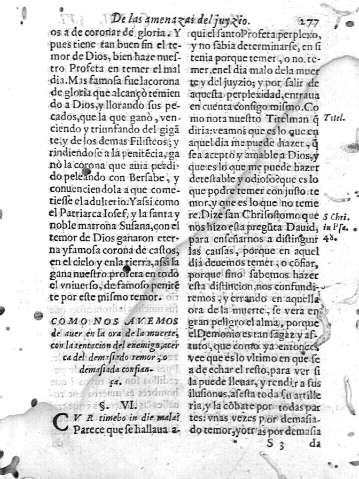 De las amenazas del juyzio. 277
os a de coronar de gloria. Y
pues tiene tan buen fin el te-
mor de Dios, bien haze nues-
tro Profeta en temer el mal
dia. Mas famosa fue la corona
de gloria que alcançò temien
do a Dios, y llorando sus pe-
cados, que la que ganò, ven-
ciendo y triunfando del gigã
te, y de los demas Filisteos; y
rindiendose a la penitẽcia, ga
nò la corona que auia perdi-
do peleando con Bersabe, y
conuenciendola a que come-
tiesse el adulterio. Y assi como
el Patriarca Iosef, y la santa y
noble matrona Susana, con el
temor de Dios ganaron eter-
na y famosa corona de castos,
en el cielo y en la tierra, assi la
gana nuestro profeta en todo
el vniuerso, de famoso penitẽ
te por este mismo temor.
COMO NOS AVEMOS
de auer en la ora de la muerte,
con la tentacion del enemigo, acer
ca del demasiado temor, o
demasiada confian-
ça.
§. VI.
CVR timebo in die mala?
Parece que se hallaua a-
qui el santo Profeta perplexo,
y no sabia determinarse, en si
tenia porque temer, o no te-
mer en el dia malo de la muer
te y del juyzio; y por salir de
aquesta perplexidad, entraua
en cuenta consigo mismo. Co
mo nota nuestro Titelman q̃
Titel.
diria: veamos que es lo que en
aquel dia me puede hazer, q̃
sea acepto y amable a Dios, y
que es lo que me puede hazer
detestable y odioso: que es lo
que podre temer con justo te
mor, y que es lo que no teme
re. Dize san Chrisostomo que
S Chri.
nos hizo esta pregũta Dauid,
in Psa.
para enseñarnos a distinguir
48.
las causas, porque en aquel
dia deuemos temer, o cõfiar,
porque sino sabemos hazer
esta distincion, nos confundi-
remos, y errando en aquella
ora de la muerte, se vera en
gran peligro el alma, porque
el Demonio es tan sagaz y as-
tuto, que como ya entonces
vee que es lo vltimo en que se
a de echar el resto, para ver si
la puede lleuar, y rendir a sus
ilusiones, asesta toda su artille
ria, y la cõbate por todas par
tes: vnas vezes por demasia-
do temor, y otras por demasia
S 3 da